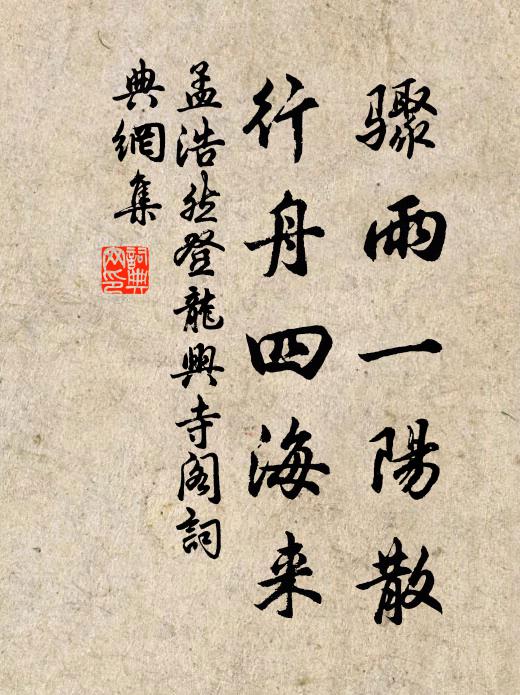 驟雨一陽散
行舟四海来
孟浩然登龍興寺閣詞
典網集
詞典
網印